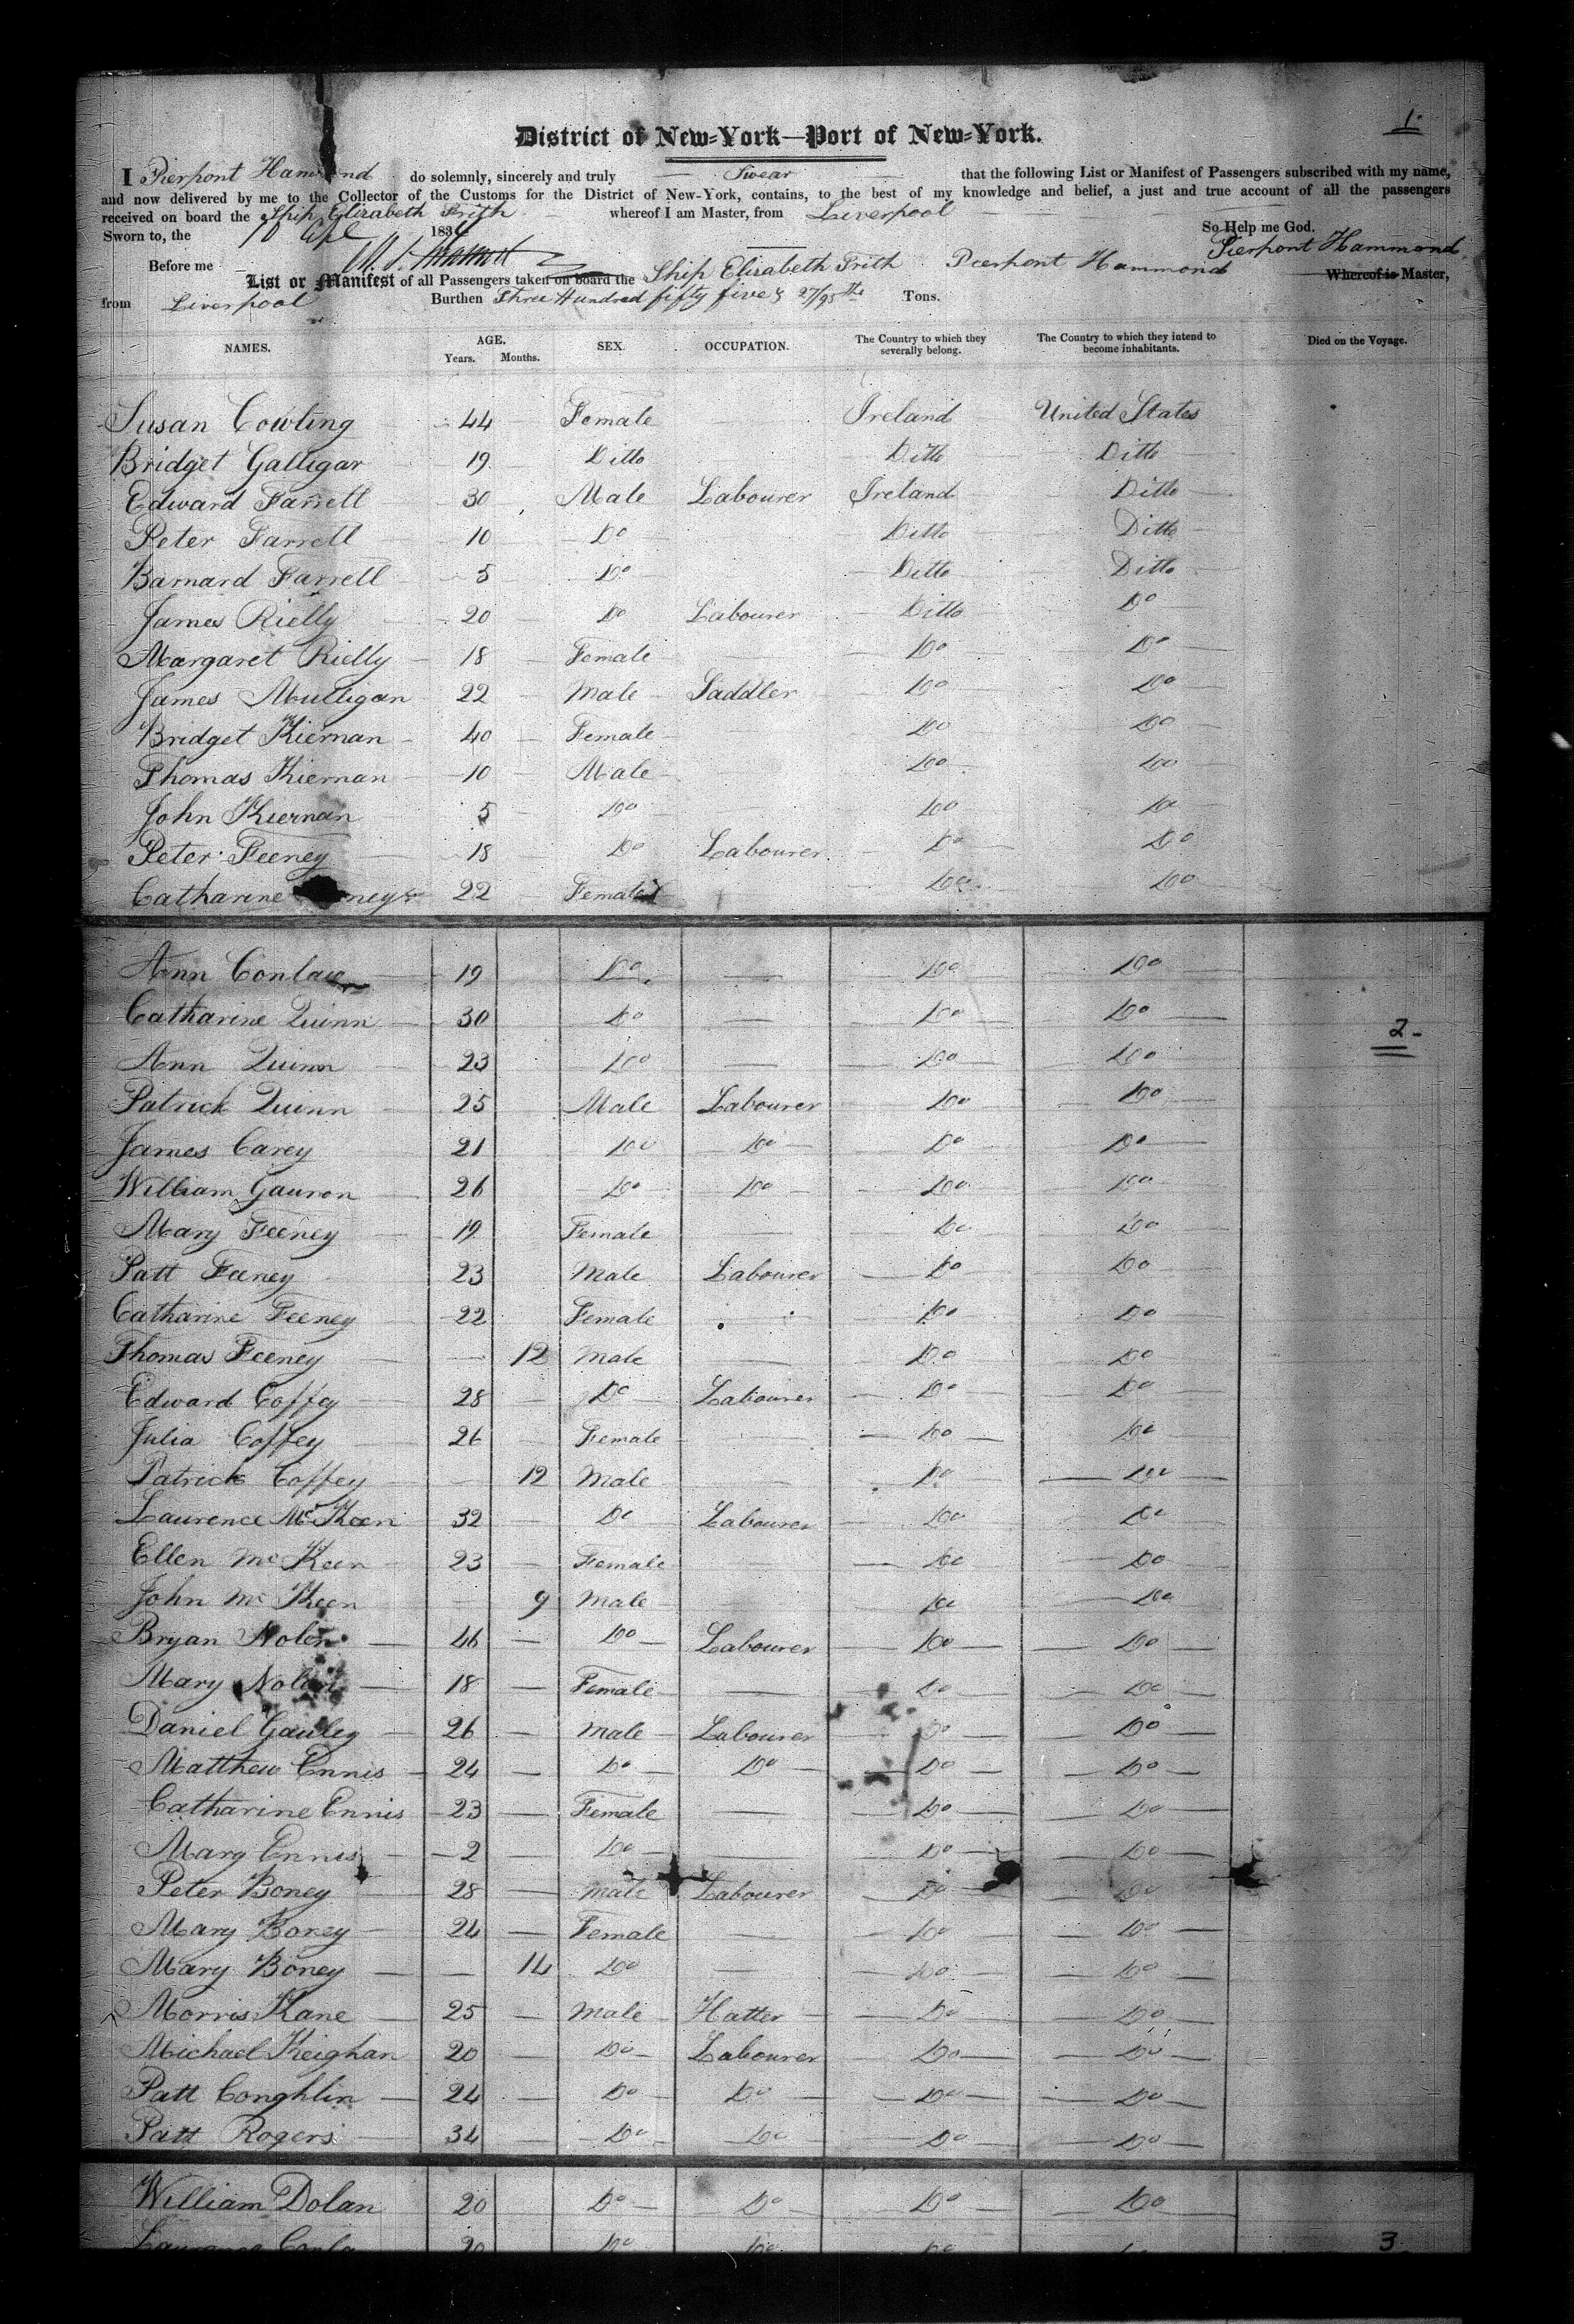 1.
District of New-York—Port of New-York.
I Pierpont Hammond do solemnly, sincerely and truly Swear that the following List or Manifest of Passengers subscribed with my name,
and now delivered by me to the Collector of the Customs for the District of New-York, contains, to the best of my knowledge and belief, a just and true account of all the passengers
received on board the Ship Elizabeth Frith whereof I am Master, from Liverpool
Sworn to, the 10 Apl 1834 So Help me God.
Before me Pierpont Hammond
List or Manifest of all Passengers taken on board the Ship Elizabeth Frith Pierpont Hammond Whereof is Master,
from Liverpool Burthen Three Hundred fifty five & 27/95ths Tons.
NAMES. AGE. Years. Months. SEX. OCCUPATION. The Country to which they severally belong. The Country to which they intend to become inhabitants. Died on the Voyage.
Susan Cowling 44 Female Ireland United States
Bridget Galligar 19 Ditto Ditto Ditto
Edward Farrell 30 Male Labourer Ireland Ditto
Peter Farrell 10 Do Ditto Ditto
Barnard Farrell 5 Do Ditto Ditto
James Rielly 20 Do Labourer Ditto Do
Margaret Rielly 18 Female Do Do
James Mulligan 22 Male Saddler Do Do
Bridget Kiernan 40 Female Do Do
Thomas Kiernan 10 Male Do Do
John Kiernan 5 Do Do Do
Peter Feeney 18 Do Labourer Do Do
Catharine 22 Female Do Do
Ann 19 Do Do Do
Catharine Quinn 30 Do Do Do
2
Ann Quinn 23 Do Do Do
Patrick Quinn 25 Male Labourer Do Do
James Carey 21 Do Do Do Do
William Gauron 26 Do Do Do Do
Mary Feeney 19 Female Do Do
Patt Feeney 23 Male Labourer Do Do
Catharine Feeney 22 Female Do Do
Thomas Feeney 12 Male Do Do
Edward Coffey 28 Do Labourer Do Do
Julia Coffey 26 Female Do Do
Patrick Coffey 12 Male Do Do
Laurence McKeen 32 Do Labourer Do Do
Ellen McKeen 23 Female Do Do
John McKeen 9 Male Do Do
Bryan Nolen 46 Do Labourer Do Do
Mary Nolen 18 Female Do Do
Daniel Gauley 26 Male Labourer Do Do
Matthew Ennis 24 Do Do Do Do
Catharine Ennis 23 Female Do Do
Mary Ennis 2 Do Do Do
Peter Boney 28 Male Labourer Do Do
Mary Boney 24 Female Do Do
Mary Boney 14 Do Do Do
Morris Kane 25 Male Hatter Do Do
Michael Keighan 20 Do Labourer Do Do
Patt Coughlin 24 Do Do Do Do
Patt Rogers 34 Do Do Do Do
William Dolan 20 Do Do Do Do
3
20 Do Do Do